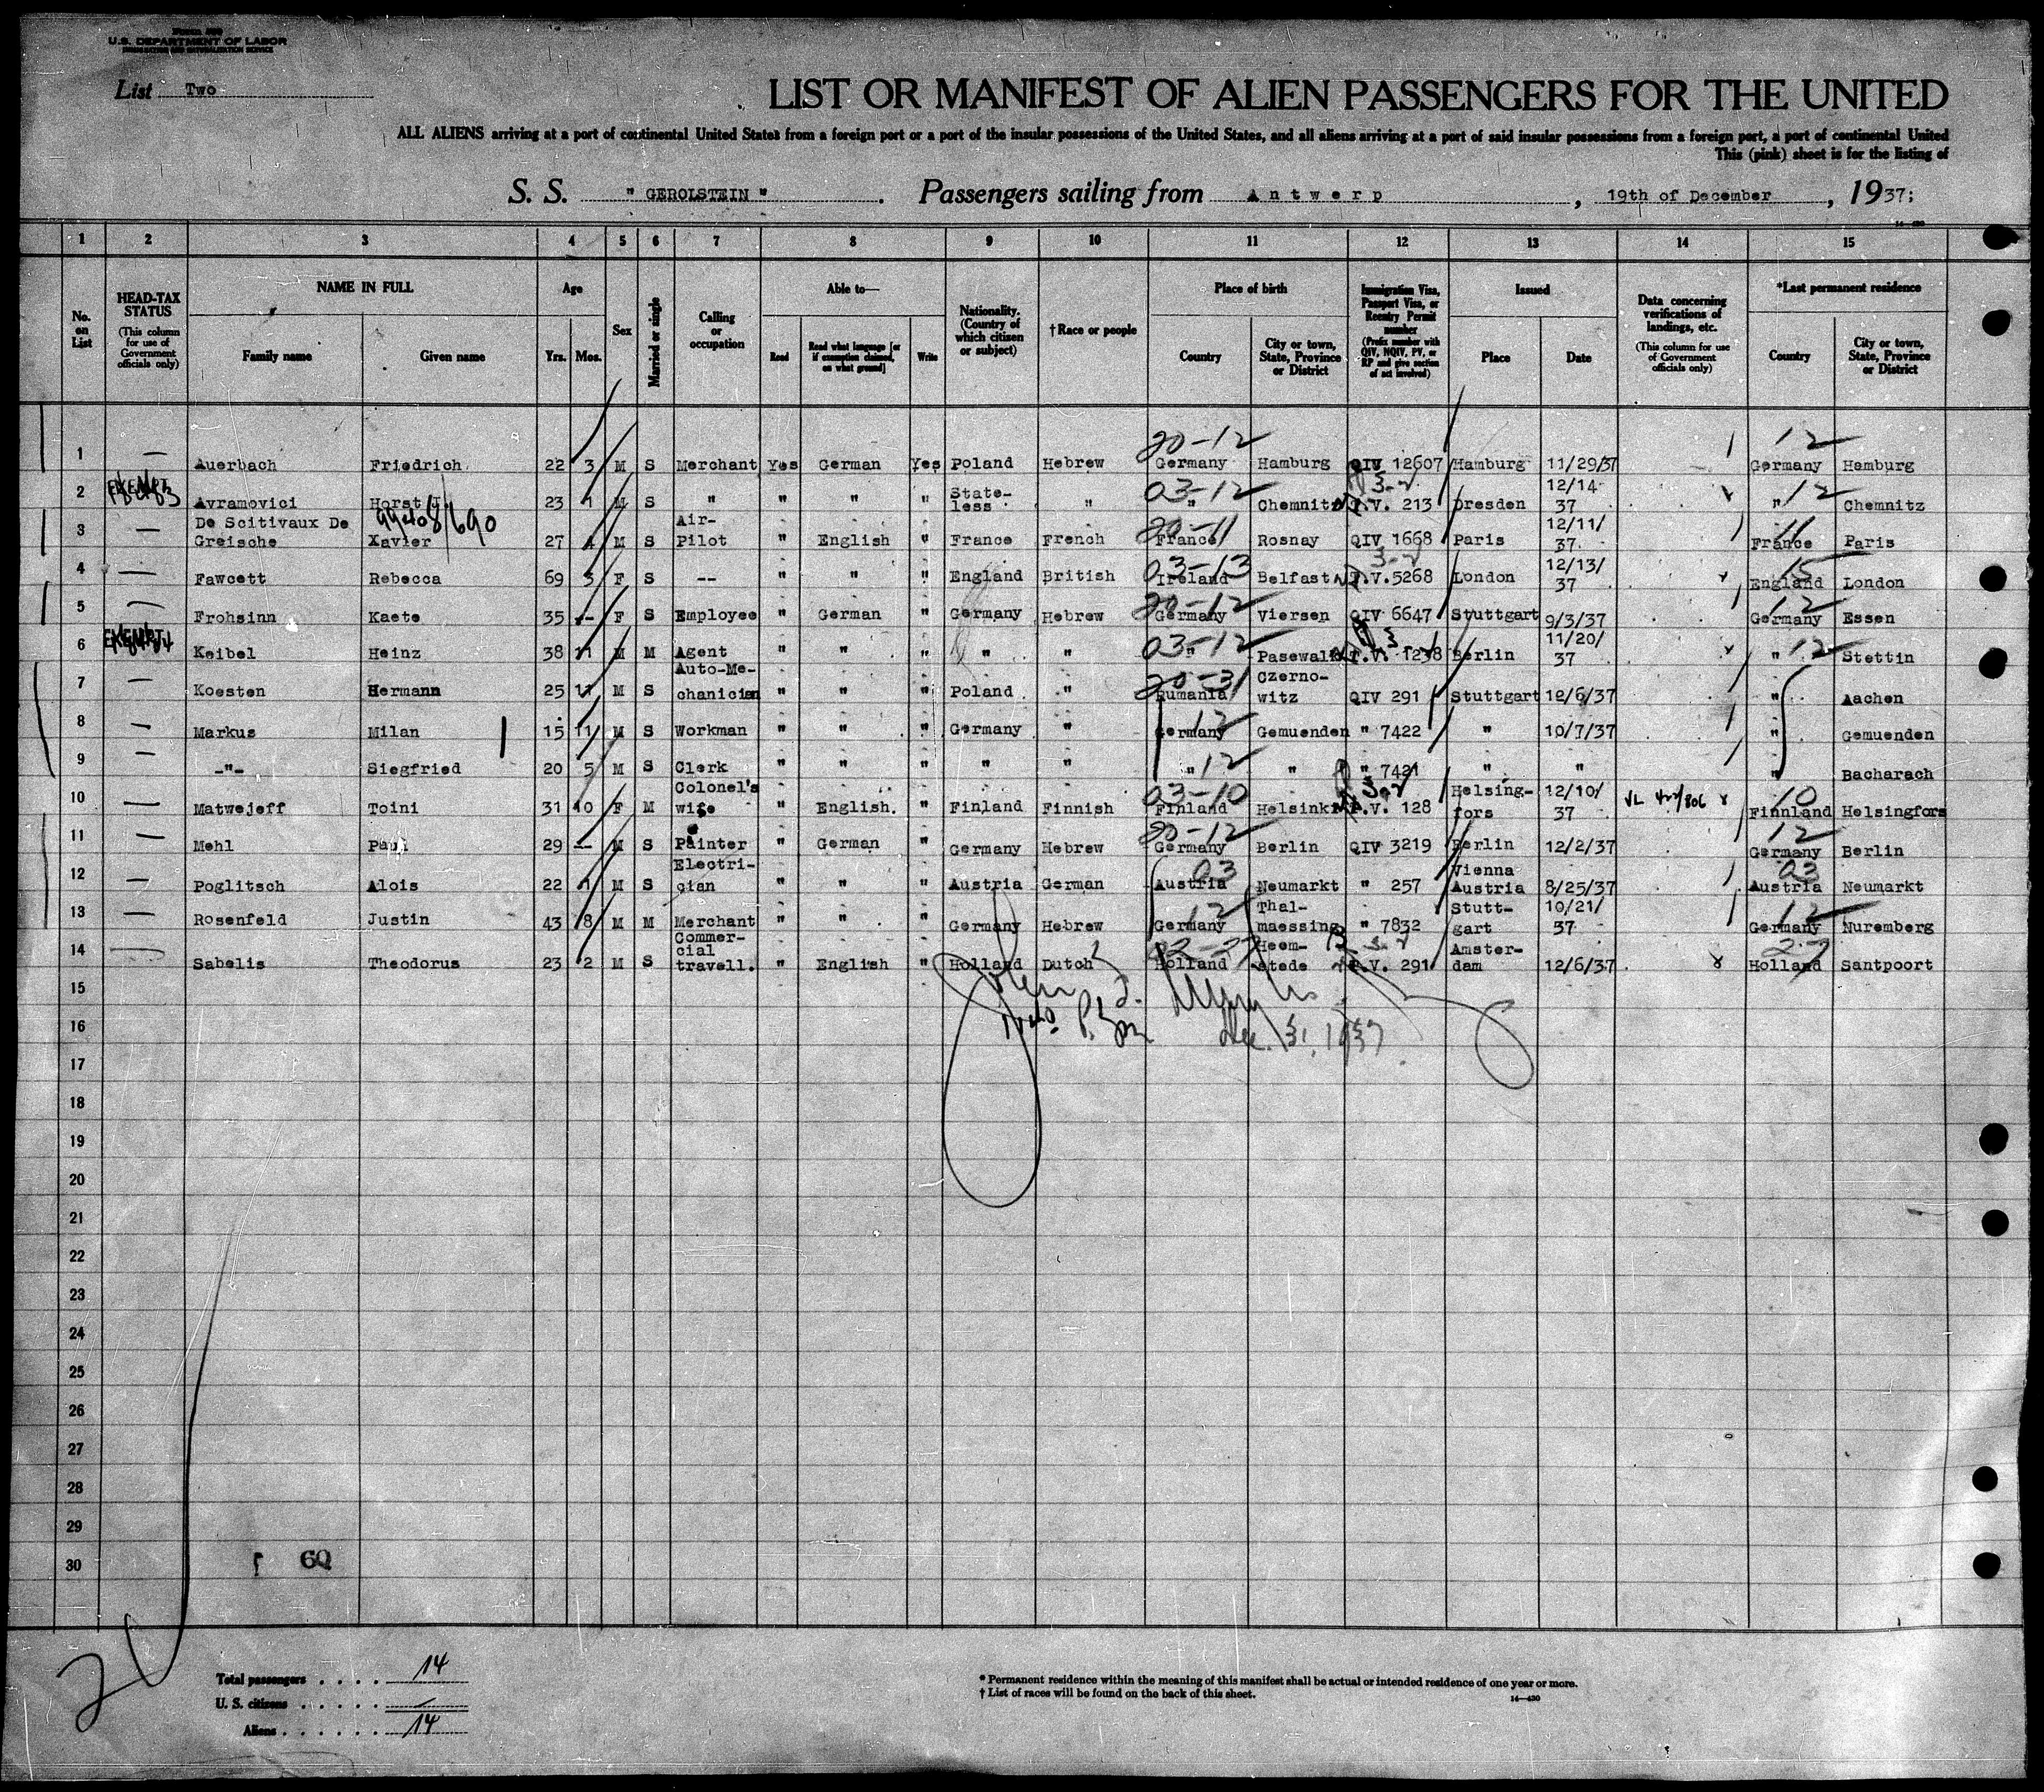 Form 500
U.S. DEPARTMENT OF LABOR
IMMIGRATION AND NATURALIZATION SERVICE
List Two
LIST OR MANIFEST OF ALIEN PASSENGERS FOR THE UNITED
ALL ALIENS arriving at a port of continental United States from a foreign port or a port of the insular possessions of the United States, and all aliens arriving at a port of said insular possessions from a foreign port, a port of continental United
This (pink) sheet is for the listing of
S. S. " GEROLSTEIN " . Passengers sailing from Antwerp , 19th of December , 1937;
1 2 3 4 5 6 7 8 9 10 11 12 13 14 15
No. on List
HEAD-TAX STATUS
(This column for use of Government officials only)
NAME IN FULL
Family name Given name
Age
Yrs. Mos.
Sex
Married or single
Calling or occupation
Able to—
Read
Read what language [or if exemption claimed, on what ground]
Write
Nationality. (Country of which citizen or subject)
†Race or people
Place of birth
Country
City or town, State, Province or District
Immigration Visa, Passport Visa, or Reentry Permit number
(Prefix number with QIV, NQIV, PV, or RP and give section of act involved)
Issued
Place Date
Data concerning verifications of landings, etc.
(This column for use of Government officials only)
*Last permanent residence
Country
City or town, State, Province or District
20-12 12
1 — Auerbach Friedrich 22 3 M S Merchant Yes German Yes Poland Hebrew Germany Hamburg QIV 12607 Hamburg 11/29/37 Germany Hamburg
EXEMPT 03-12 3-2 12
2 Avramovici Horst J. 23 1 M S " " " " State-less " " Chemnitz P.V. 213 Dresden 12/14 37 " Chemnitz
99408/690 20-11 11
3 — De Scitivaux De Greische Xavier 27 4 M S Air-Pilot " English " France French France Rosnay QIV 1668 Paris 12/11/ 37. France Paris
03-13 3-2 15
4 — Fawcett Rebecca 69 3 F S -- " " " England British Ireland Belfast P.V.5268 London 12/13/ 37 England London
20-12 12
5 — Frohsinn Kaete 35 -- F S Employee " German " Germany Hebrew Germany Viersen QIV 6647 Stuttgart 9/3/37 Germany Essen
EXEMPT 03-12 12
6 Keibel Heinz 38 11 M M Agent " " " " " " Pasewalk P.V. 1238 Berlin 11/20/ 37 " Stettin
20-31
7 — Koesten Hermann 25 11 M S Auto-Me-chanician " " " Poland " Rumania Czerno-witz QIV 291 Stuttgart 12/6/37 " Aachen
12
8 — Markus Milan 15 11 M S Workman " " " Germany " Germany Gemuenden " 7422 " 10/7/37 " Gemuenden
12
9 — -"- Siegfried 20 5 M S Clerk " " " " " " " " 7421 " " " Bacharach
03-10 3-2 10
10 — Matwejeff Toini 31 10 F M Colonel's wife " English. " Finland Finnish Finland Helsinki P.V. 128 Helsing-fors 12/10/ 37 Finnland Helsingfors
20-12 12
11 — Mehl Paul 29 -- M S Painter " German " Germany Hebrew Germany Berlin QIV 3219 Berlin 12/2/37 Germany Berlin
03 03
12 — Poglitsch Alois 22 1 M S Electri-cian " " " Austria German Austria Neumarkt " 257 Vienna Austria 8/25/37 Austria Neumarkt
12 12
13 — Rosenfeld Justin 43 8 M M Merchant " " " Germany Hebrew Germany Thal-maessing " 7832 Stutt-gart 10/21/ 37 Germany Nuremberg
3-2 27
14 — Sabelis Theodorus 23 2 M S Commer-cial travell. " English " Holland Dutch Holland Heem-stede P.V. 291 Amster-dam 12/6/37 Holland Santpoort
15
16
Dec. 31, 1937
17
18
19
20
21
22
23
24
25
26
27
28
29
30 60
Total passengers . . . . 14
U. S. citizens . . . . . —
Aliens . . . . . . 14
* Permanent residence within the meaning of this manifest shall be actual or intended residence of one year or more.
† List of races will be found on the back of this sheet. 14—430